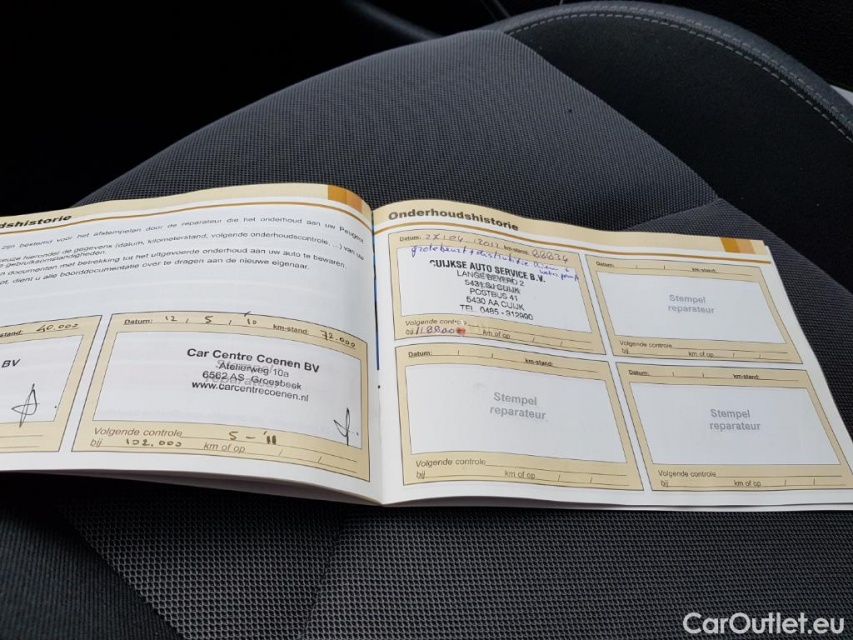 dshistorie
zijn bestemd voor het afstempelen door de reparateur die het onderhoud aan uw Peugeot
hieronder de gegevens (datum, kilometerstand, volgende onderhoudscontrole, ...) van uw
gebruiksomstandigheden.
documenten met betrekking tot het uitgevoerde onderhoud aan uw auto te bewaren.
t, dient u alle boorddocumentatie over te dragen aan de nieuwe eigenaar.
stand: 40.002
BV
Datum: 12 / 5 / '10 km-stand: 72.000
Car Centre Coenen BV
Atelierweg 10a
6562 AS Groesbeek
www.carcentrecoenen.nl
Volgende controle 5 - '11
bij 102.000 km of op / /
Onderhoudshistorie
Datum: km-stand:
CUIJKSE AUTO SERVICE B.V.
LANGE BEIJERD 2
5431 SJ CUIJK
POSTBUS 41
5430 AA CUIJK
TEL. 0485 - 312990
Volgende controle
bij km of op / /
Datum: / / km-stand:
Stempel
reparateur
Volgende controle
bij km of op / /
Datum: / / km-stand:
Stempel
reparateur
Volgende controle
bij km of op / /
Datum: / / km-stand:
Stempel
reparateur
Volgende controle
bij km of op / /
CarOutlet.eu